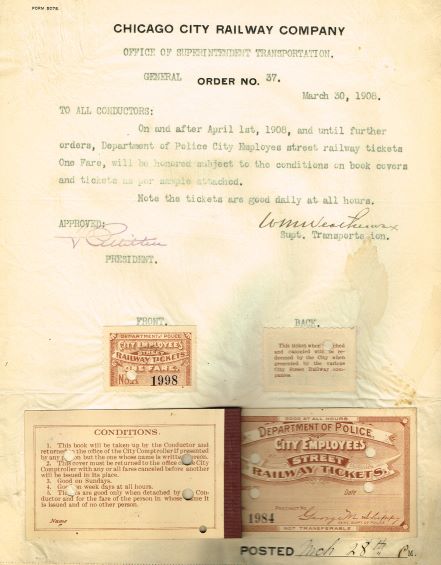 FORM 5078.
CHICAGO CITY RAILWAY COMPANY
OFFICE OF SUPERINTENDENT TRANSPORTATION.
GENERAL ORDER NO. 37.
March 30, 1908.
TO ALL CONDUCTORS:
On and after April 1st, 1908, and until further
orders, Department of Police City Employes street railway tickets
One Fare, will be honored subject to the conditions on book covers
and tickets as per sample attached.
Note the tickets are good daily at all hours.
APPROVED:
Supt. Transportation.
PRESIDENT.
FRONT. BACK.
DEPARTMENT OF POLICE
CITY EMPLOYEES
STREET
RAILWAY TICKETS.
ONE FARE.
No. 1998
This ticket when
and canceled will be re-
deemed by the City when
presented by the various
City Street Railway com-
panies.
CONDITIONS.
1. This book will be taken up by the Conductor and
returned to the office of the City Comptroller if presented
by any but the one whose name is written
2. This cover must be returned to the office of City
Comptroller with any or all fares canceled before another
will be issued in its place.
3. Good on Sundays.
4. Good on week days at all hours.
5. Tickets are good only when detached by Con-
ductor and for the fare of the person in whose name it
is issued and of no other person.
Name
GOOD AT ALL HOURS
DEPARTMENT OF POLICE.
CITY EMPLOYEES
STREET
RAILWAY TICKETS.
Date
Precinct No.
1984 George M. Shippy
GEN'L SUPT. OF POLICE
NOT TRANSFERABLE
POSTED Mch 28th PM.